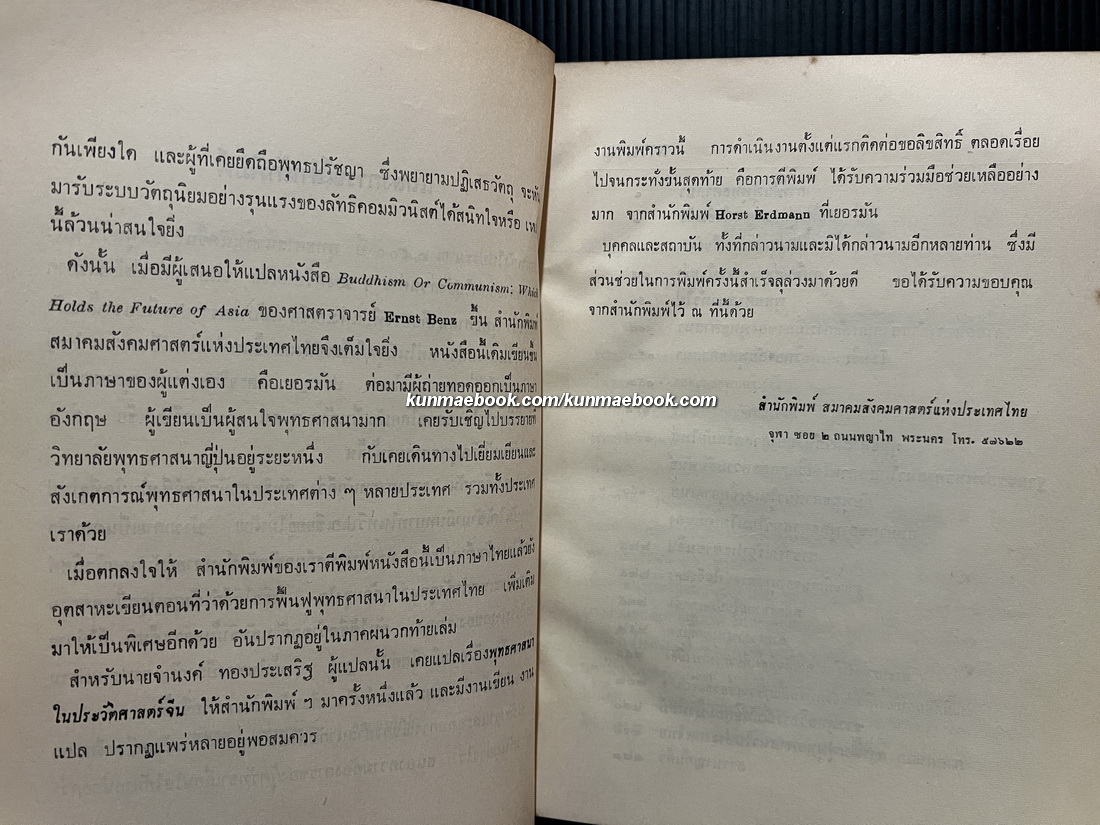 กันเพียงใด และผู้ที่เคยยึดถือพุทธปรัชญา ซึ่งพยายามปฏิเสธวัตถุ จะหัน
มารับระบบวัตถุนิยมอย่างรุนแรงของลัทธิคอมมิวนิสต์ได้สนิทใจหรือ
นี้ล้วนน่าสนใจยิ่ง
ดังนั้น เมื่อมีผู้เสนอให้แปลหนังสือ Buddhism Or Communism: Which
Holds the Future of Asia ของศาสตราจารย์ Ernst Benz ขึ้น สำนักพิมพ์
สมาคมสังคมศาสตร์แห่งประเทศไทยจึงเต็มใจยิ่ง หนังสือนี้เดิมเขียนขึ้น
เป็นภาษาของผู้แต่งเอง คือเยอรมัน ต่อมามีผู้ถ่ายทอดออกเป็นภาษา
อังกฤษ ผู้เขียนเป็นผู้สนใจพุทธศาสนามาก เคยรับเชิญไปบรรยายที่
วิทยาลัยพุทธศาสนาญี่ปุ่นอยู่ระยะหนึ่ง กับเคยเดินทางไปเยี่ยมเยียนและ
สังเกตการณ์พุทธศาสนาในประเทศต่าง ๆ หลายประเทศ รวมทั้งประเทศ
เราด้วย
เมื่อตกลงใจให้ สำนักพิมพ์ของเราตีพิมพ์หนังสือนี้เป็นภาษาไทยแล้วยัง
อุตสาหะเขียนตอนที่ว่าด้วยการฟื้นฟูพุทธศาสนาในประเทศไทย เพิ่มเติม
มาให้เป็นพิเศษอีกด้วย อันปรากฏอยู่ในภาคผนวกท้ายเล่ม
สำหรับนายจำนงค์ ทองประเสริฐ ผู้แปลนั้น เคยแปลเรื่องพุทธศาสนา
ในประวัติศาสตร์จีน ให้สำนักพิมพ์ ๆ มาครั้งหนึ่งแล้ว และมีงานเขียน งาน
แปล ปรากฏแพร่หลายอยู่พอสมควร
งานพิมพ์คราวนี้ การดำเนินงานตั้งแต่แรกติดต่อขอลิขสิทธิ์ ตลอดเรื่อย
ไปจนกระทั่งขั้นสุดท้าย คือการตีพิมพ์ ได้รับความร่วมมือช่วยเหลืออย่าง
มาก จากสำนักพิมพ์ Horst Erdmann ที่เยอรมัน
บุคคลและสถาบัน ทั้งที่กล่าวนามและมิได้กล่าวนามอีกหลายท่าน ซึ่งมี
ส่วนช่วยในการพิมพ์ครั้งนี้สำเร็จลุล่วงมาด้วยดี ขอได้รับความขอบคุณ
จากสำนักพิมพ์ไว้ ณ ที่นี้ด้วย
สำนักพิมพ์ สมาคมสังคมศาสตร์แห่งประเทศไทย
จุฬา ซอย ๒ ถนนพญาไท พระนคร โทร. ๕๗๖๒๒
kunmaebook.com/kunmaebook.com